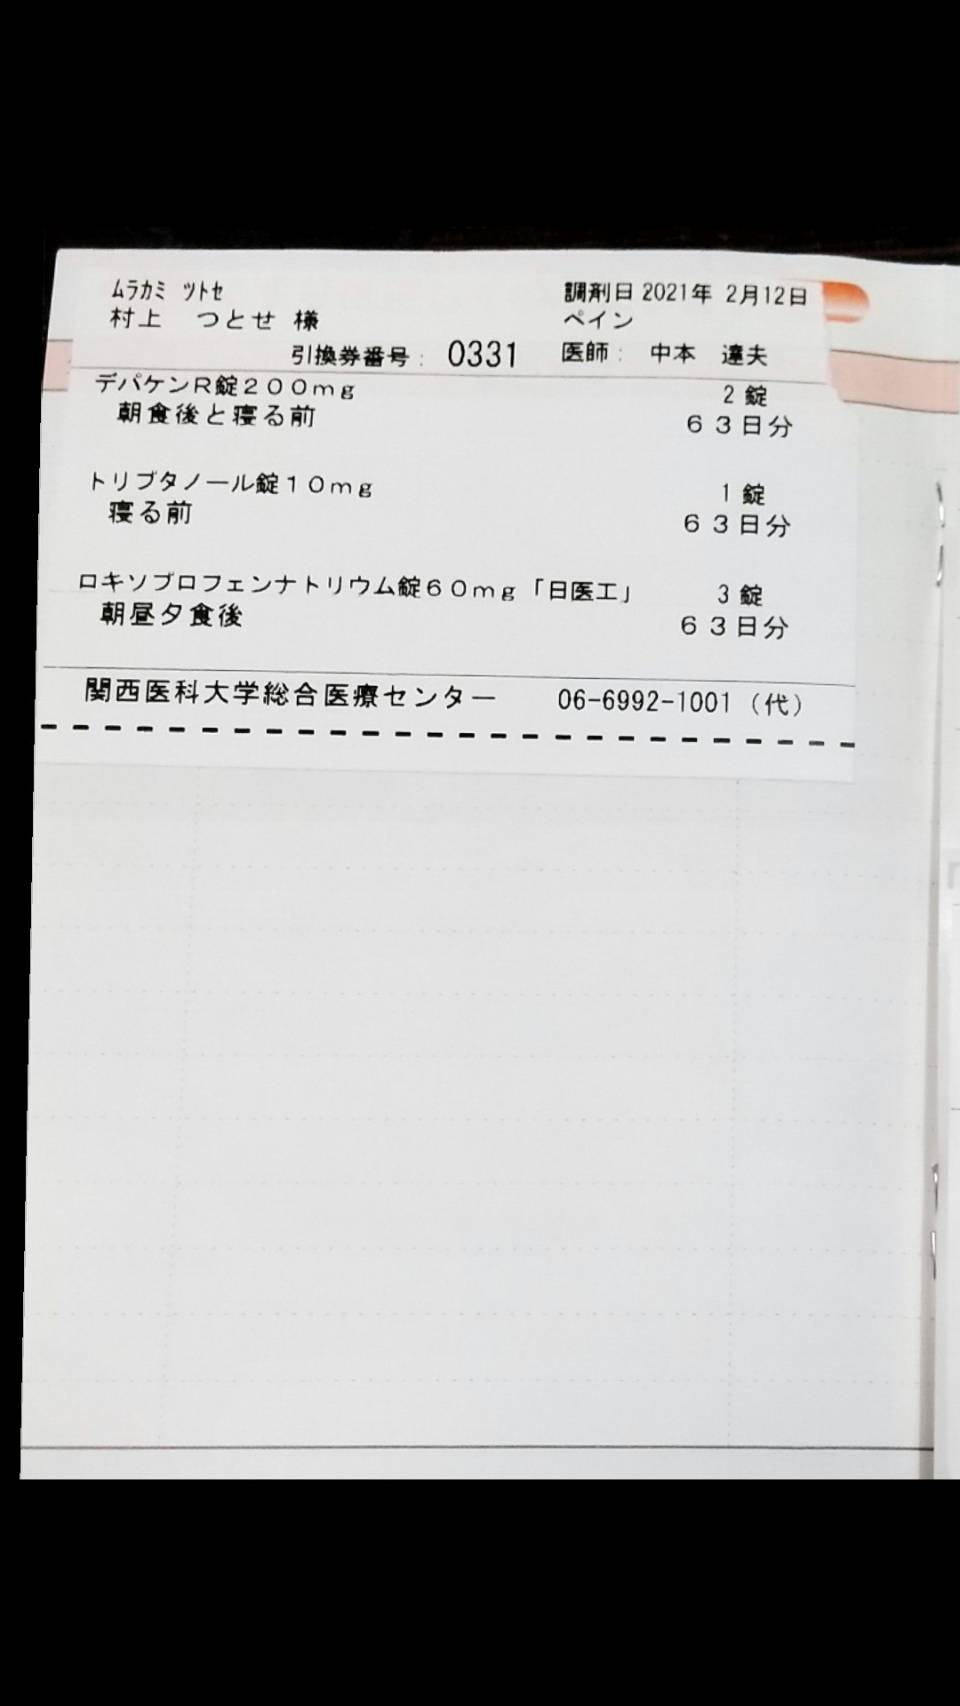 ムラカミ ツトセ
調剤日 2021年 2月12日
村上 つとせ 様
ペイン
引換券番号: 0331
医師: 中本 達夫
デパケンR錠200mg 2錠
朝食後と寝る前 63日分
トリプタノール錠10mg 1錠
寝る前 63日分
ロキソプロフェンナトリウム錠60mg「日医工」 3錠
朝昼夕食後 63日分
関西医科大学総合医療センター 06-6992-1001(代)